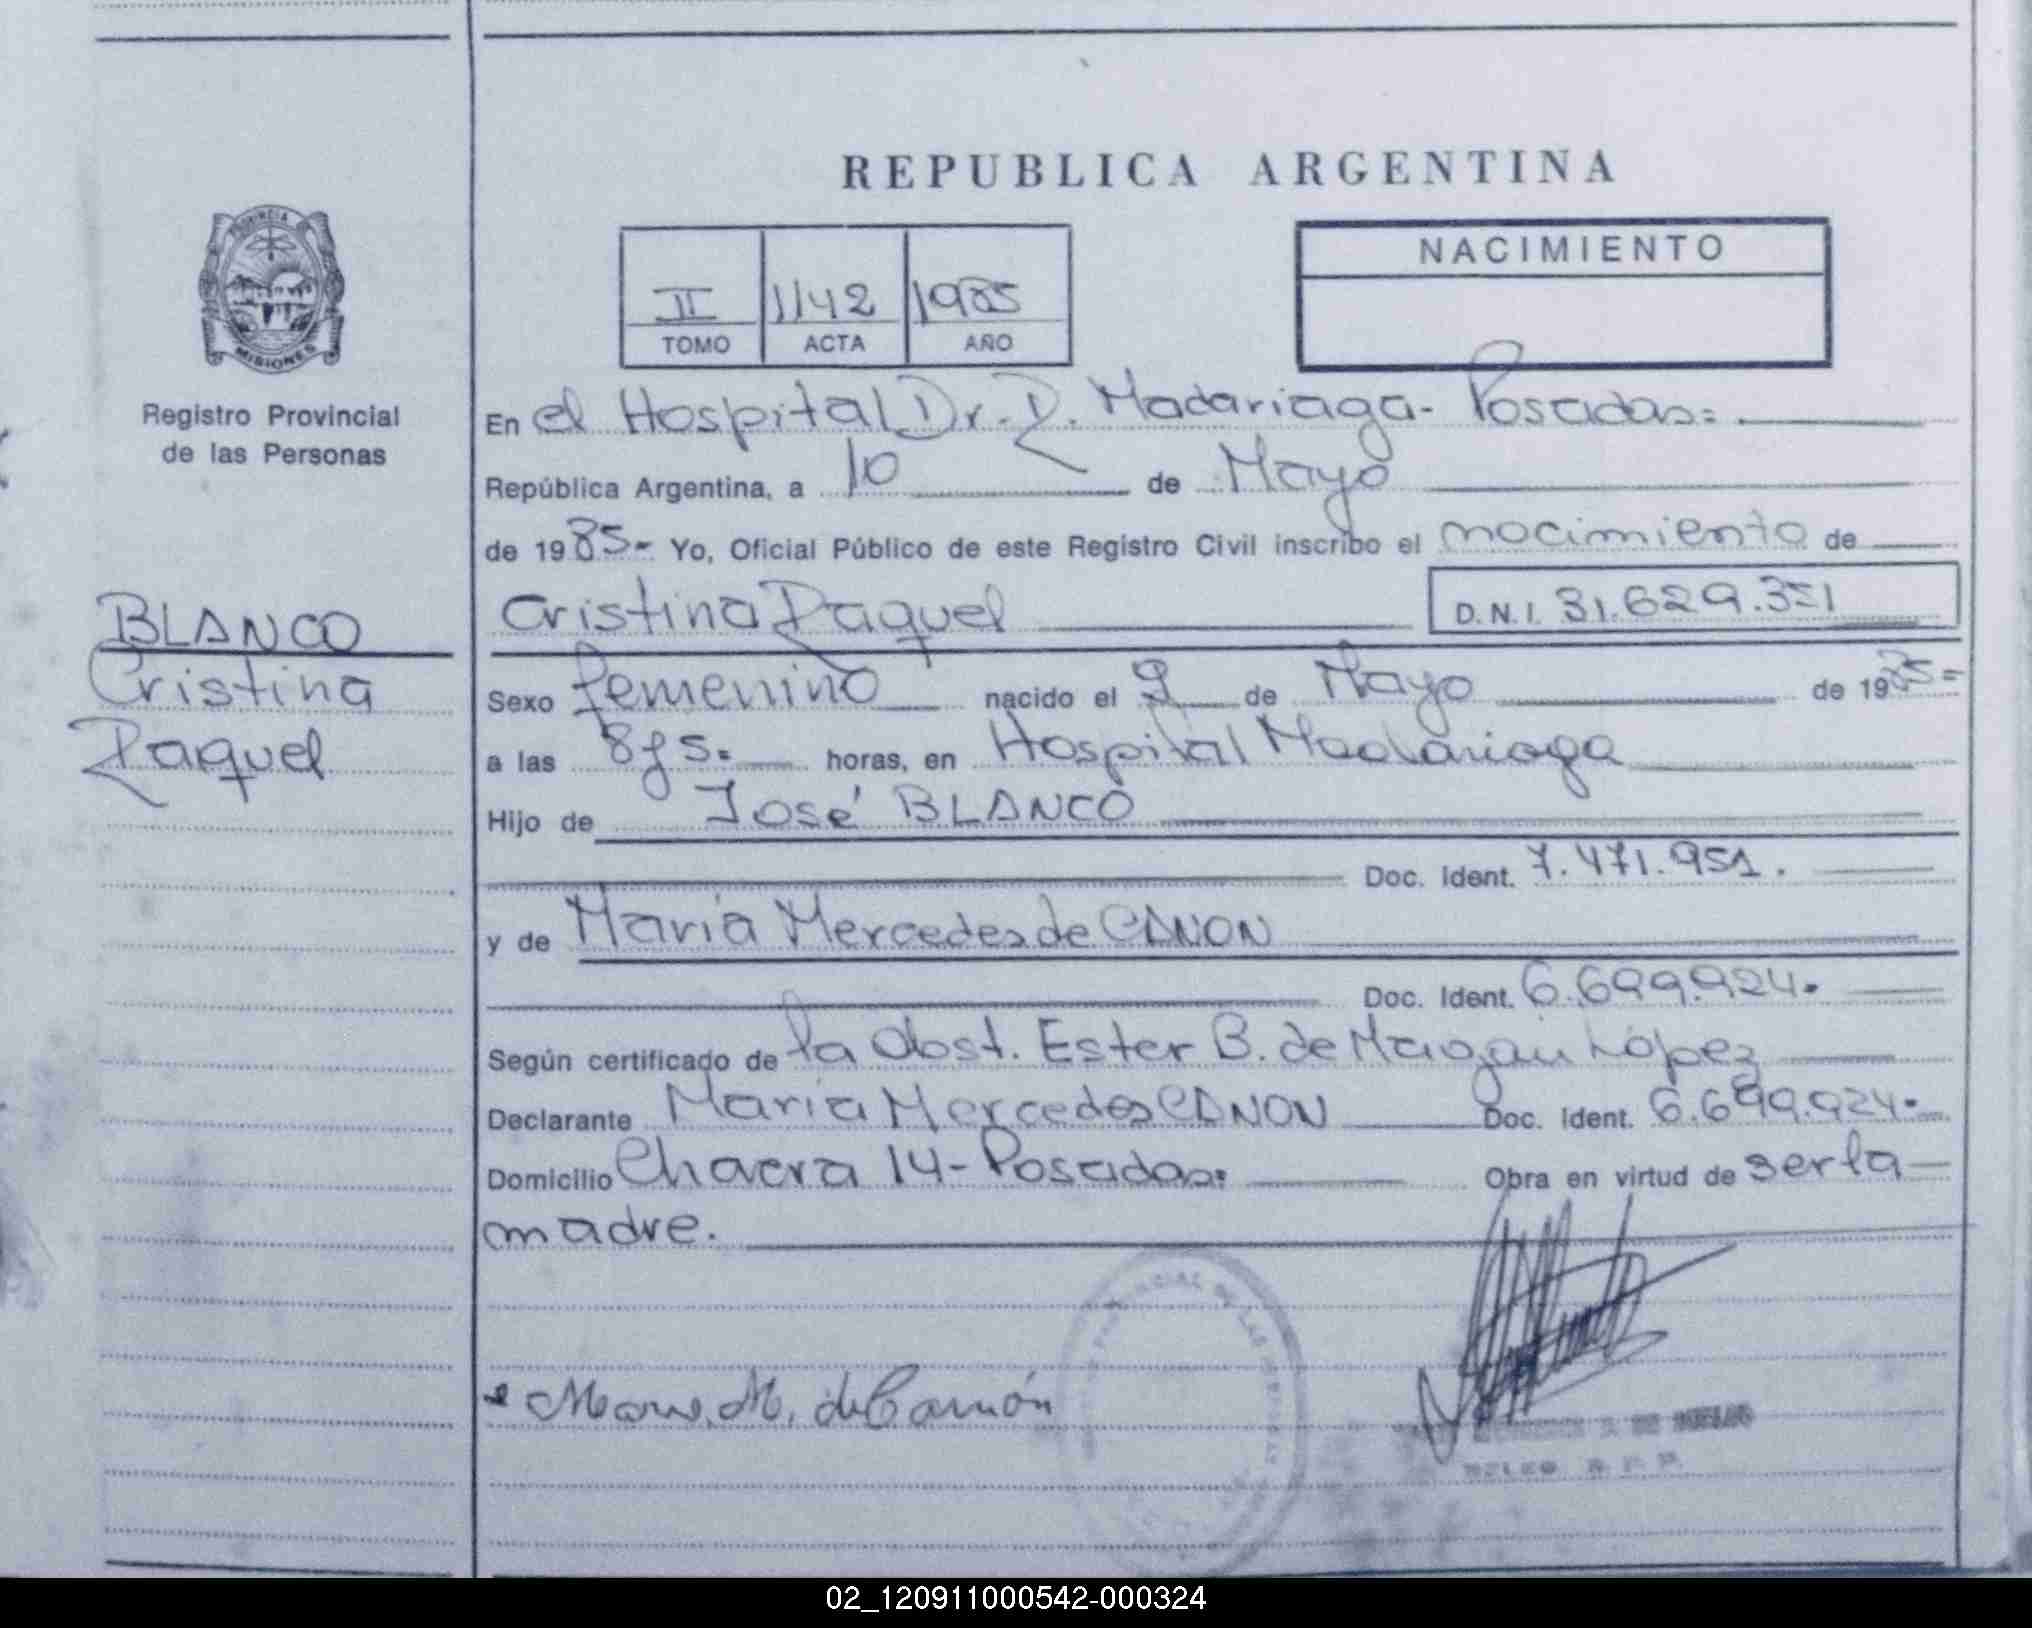 REPUBLICA ARGENTINA
PROVINCIA
MISIONES
Registro Provincial
de las Personas
NACIMIENTO
II 1142 1985
TOMO ACTA AÑO
En el Hospital Dr. R. Madariaga- Posadas=
República Argentina, a 10 de Mayo
de 1985- Yo, Oficial Público de este Registro Civil inscribo el nacimiento de
BLANCO
Cristina
Raquel
Cristina Raquel D.N.I. 31.629.351
Sexo femenino nacido el 9 de Mayo de 1985=
a las 8 y 5= horas, en Hospital Madariaga
Hijo de José BLANCO
Doc. Ident. 7.471.951.
y de María Mercedes de CANON
Doc. Ident. 6.699.924.
Según certificado de la Obst. Ester B. de López
Declarante María Mercedes CANON Doc. Ident. 6.699.924.
Domicilio Chacra 14- Posadas= Obra en virtud de ser la
madre.
M. de
02_120911000542-000324